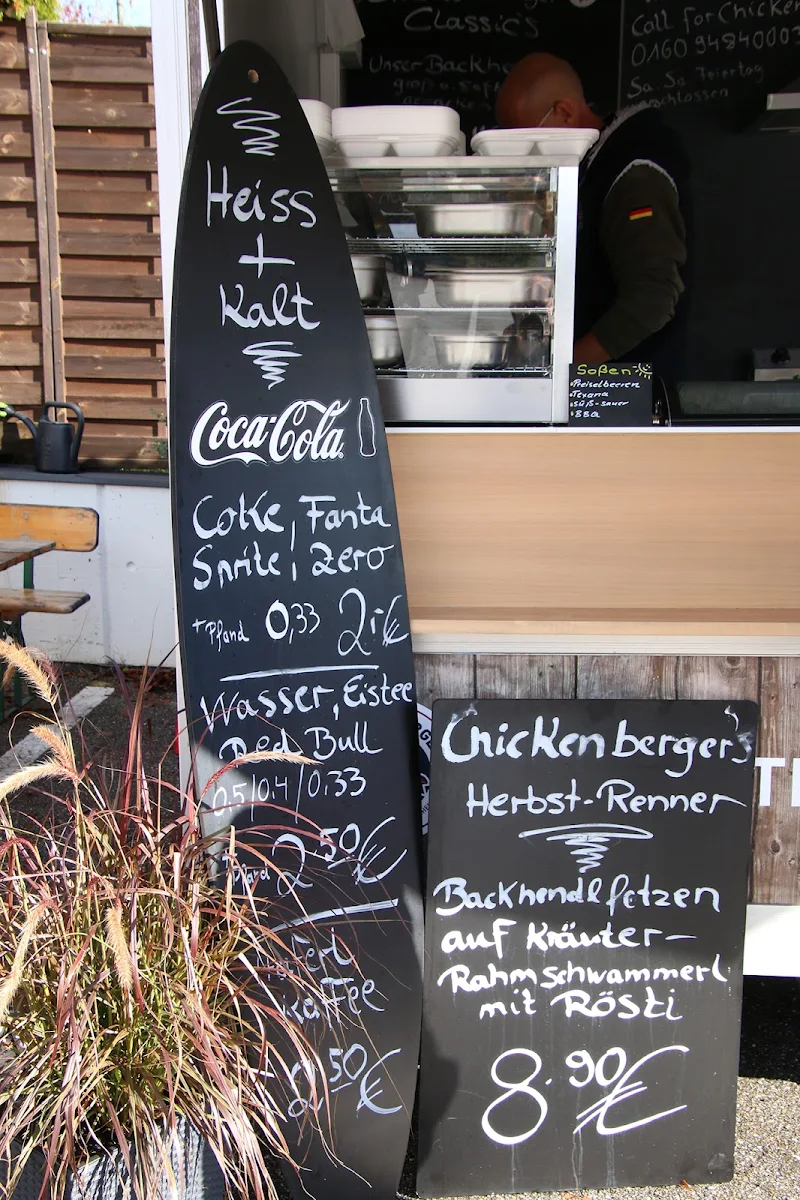 Classic's
Call for Chicken
0160 9484000
Sa. So Feiertag
Unser Backhe
Heiss
+
Kalt
Coca-Cola
Coke, Fanta
Sprite, Zero
+Pfand 0,33 2,-€
Wasser, Eistee
Red Bull
0,5/0,4/0,33
+Pfand 2 50 €
Kaffee
2 50 €
Soßen
Preiselbeeren
Texana
süß-sauer
BBQ
Chickenberger's
Herbst-Renner
Backhendlfetzen
auf Kräuter-
Rahmschwammerl
mit Rösti
8.90 €